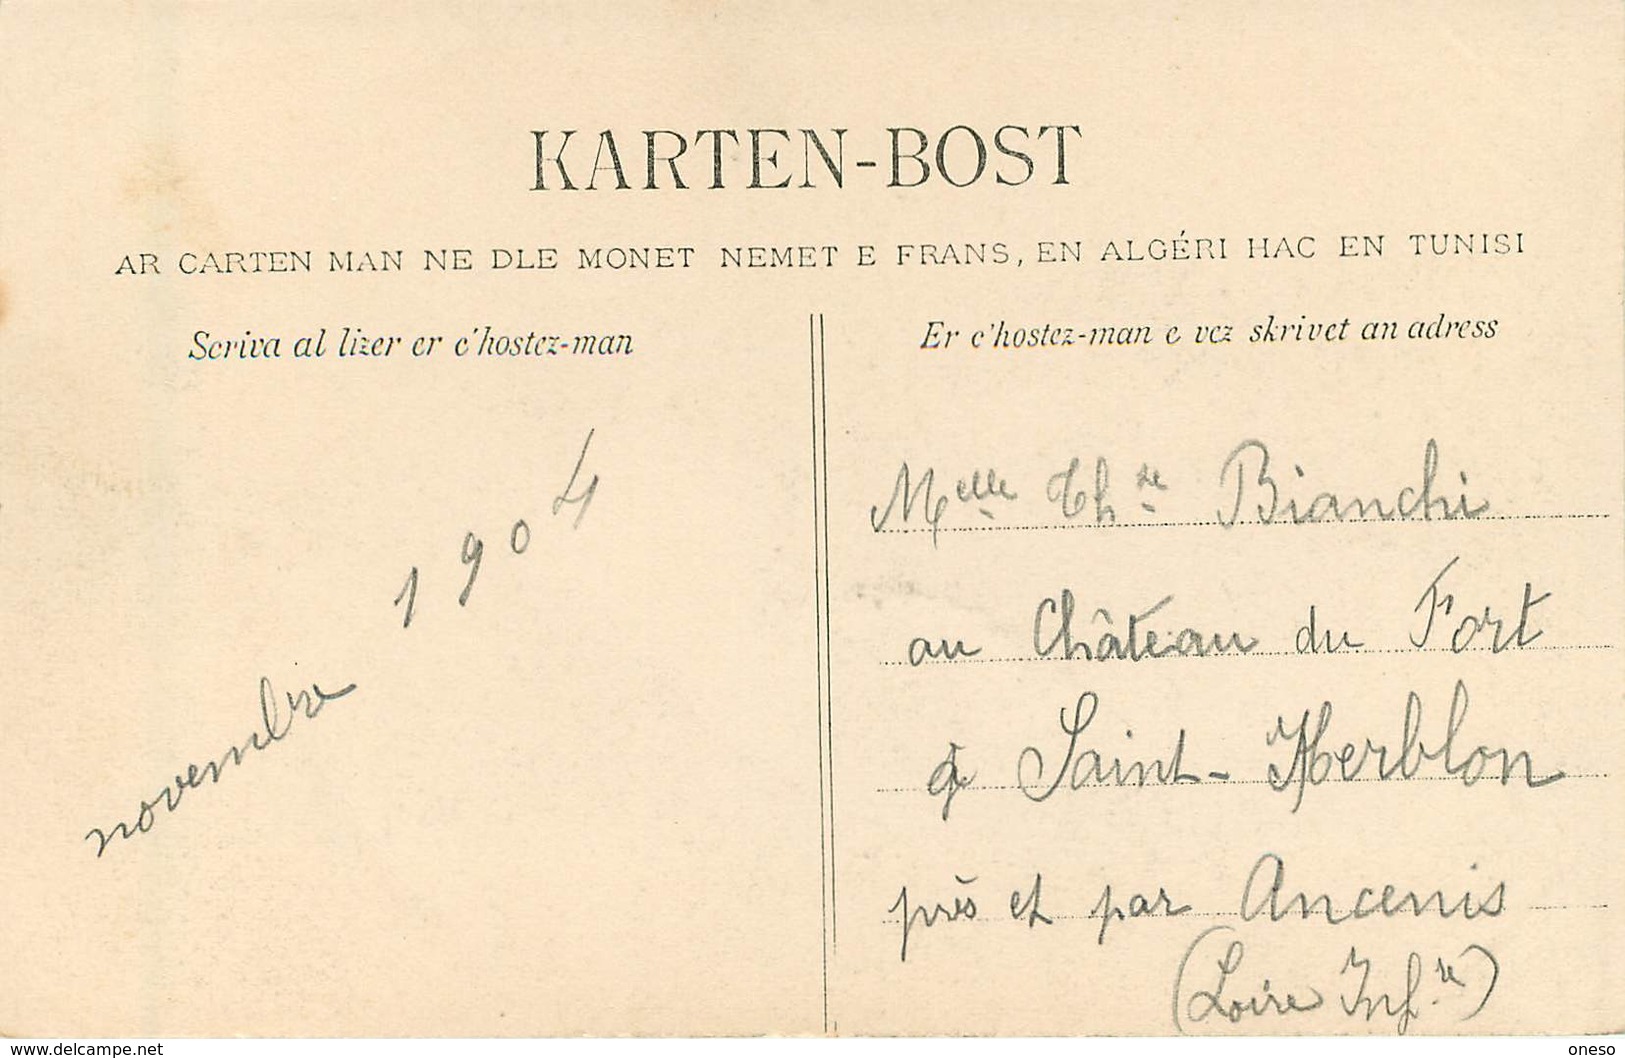 KARTEN-BOST
AR CARTEN MAN NE DLE MONET NEMET E FRANS, EN ALGÉRI HAC EN TUNISI
Scriva al lizer er c'hostez-man
Er c'hostez-man e vez skrivet an adress
novembre 1904
Melle Thse Bianchi
au Château du Fort
à Saint-Herblon
près et par Ancenis
(Loire Infre)
www.delcampe.net
oneso